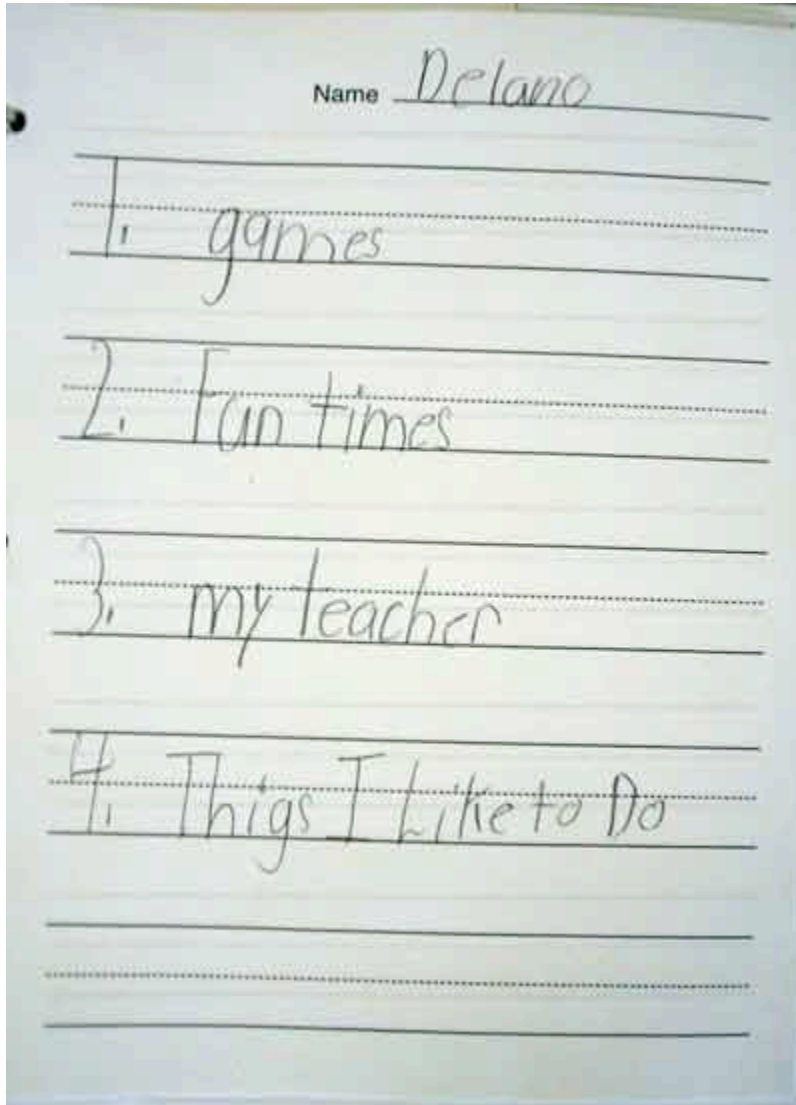 Name Delano
1. games
2. Fun times
3. my teacher
4. Thigs I Like to Do